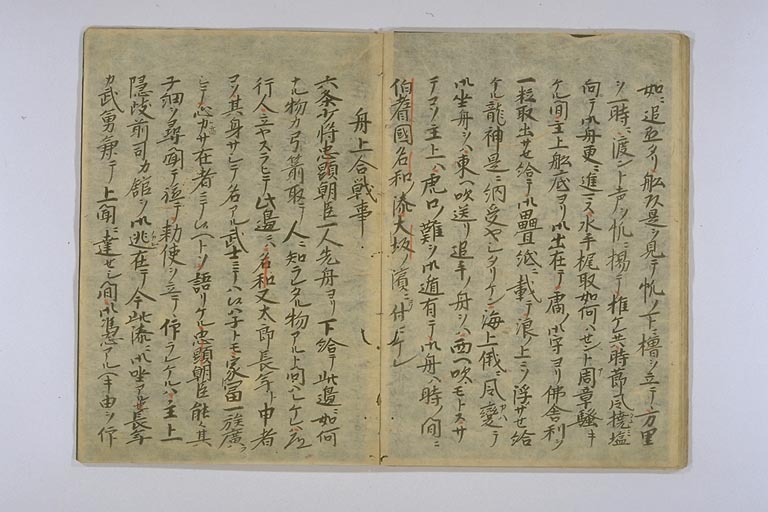 如ニ追懸タリ船頭是ヲ見テ帆ノ下ニ櫓ヲ立テ万里
ヲ一時ニ渡ント声ヲ帆ニ揚テ推ケレ共時節風撓塩
向テ御舟更ニ進マス水手梶取如何ハセント周章騒キ
ケル間主上船底ヨリ御出在テ膚御守ヨリ佛舎利ヲ
一粒取出サせ給テ御畳紙ニ載テ浪ノ上ニソ浮サせ給
ケル龍神是ニ納受ヤシタリケン海上俄ニ風變テ
御坐舟ヲハ東ヘ吹送リ追手ノ舟ヲハ西ヘ吹モトスサ
テコソ主上ハ虎口ノ難ヲ御遁有テ御舟ハ時ノ間ニ
伯耆國名和湊大坂ノ濱ヘ付ニケレ
舟上合戦事
六条少将忠顕朝臣一人先舟ヨリ下給テ此邊ニ如何
ナル物カ弓箭取テ人ニ知ラレタル物アルト問ハレケレハ道
行人立ヤスラヒテ此邊ニハ名和又太郎長年ト申者
コソ其身サシテ名アル武士ニテハ候ハネトモ家冨一族廣
シテ心カサ在者ニテ候ヘトソ語リケル忠顕朝臣能々其
子細ヲ尋聞テ 勅使ヲ立テ仰ラレケルハ主上
隠岐前司カ舘ヲ御逃在テ今此湊ニ御坐アリ長年
カ武勇兼テ上聞ニ達せシ間御憑アルヘキ由ヲ仰